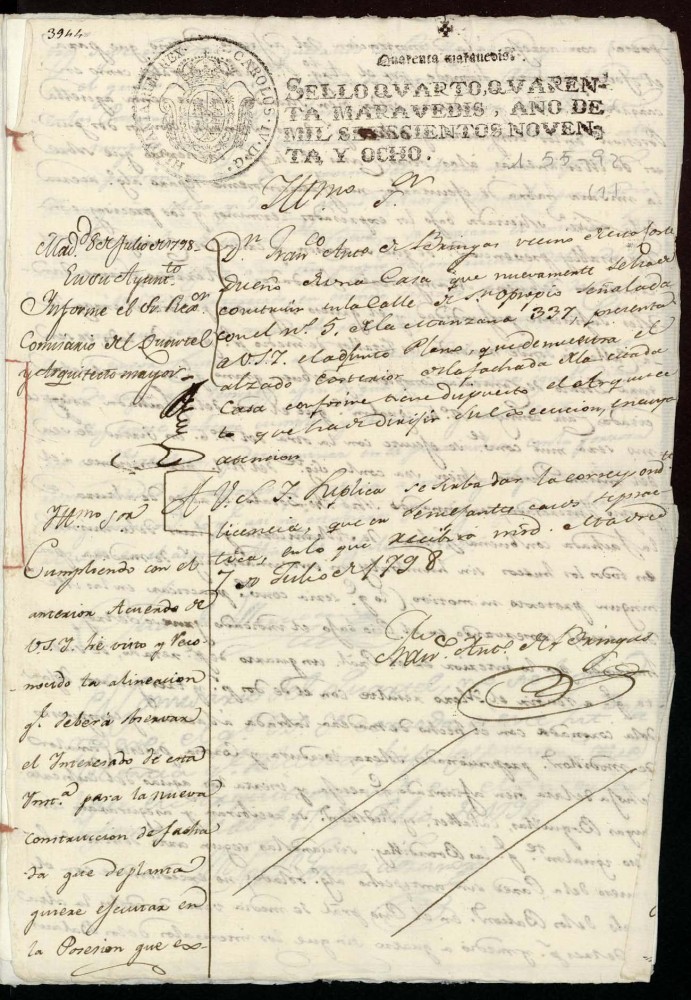 3944
Quarenta marauedis.
SELLO QVARTO, QVAREN-
TA MARAVEDIS, AÑO DE
MIL SEISCIENTOS NOVEN-
TA Y OCHO.
CAROLUS II D.G. HISPANIARUM REX
1-55-92
Yllmo Sr
Madd 8 de Julio de 1798
En su Aynt.to
Informe el Sr. Reg.or
Comisario del Quartel
y Arquitecto mayor
Dn Franco Anto de Bringas vecino de esta Corte
dueño de una Casa que nuevamente se ha de
construir en la Calle de señalada
con el no. 5. de la Manzana 337, presenta
a V.S.I. el adjunto Plano, que demuestra el
alzado exterior en la fachada de la citada
Casa conforme tiene dispuesto el Arquitec
to que ha de dirigir su execucion, en cuya
atencion
A V.S.I. Suplica se sirba dar la correspondte
licencia, que en semejantes casos se prac-
tica, en lo que recibira mrd. Madrid
7 de Julio de 1798
Franco. Anto. de Bringas
Yllmo Sor
Cumpliendo con el
anterior Acuerdo de
V.S.I. he visto y reco-
nocido la alineacion
qe. debera observar
el Interesado de esta
Inst.a para la nueva
construccion de facha
da que de planta
quiere ejecutar en
la Posesion que ex-